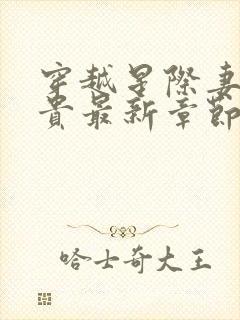 穿越星際妻
貴最新章節
哈士奇大王